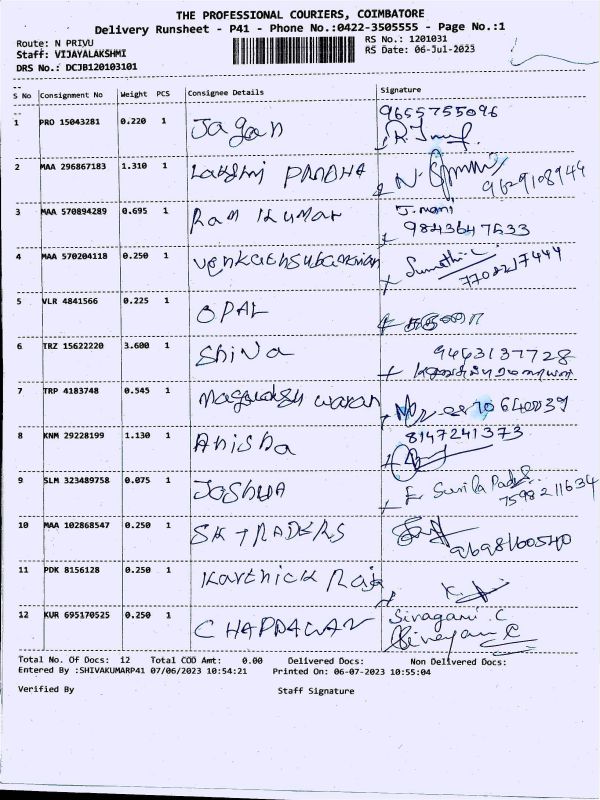 THE PROFESSIONAL COURIERS, COIMBATORE
Delivery Runsheet - P41 - Phone No.:0422-3505555 - Page No.:1
Route: N PRIVU
RS No.: 1201031
Staff: VIJAYALAKSHMI
RS Date: 06-Jul-2023
DRS No.: DCJB120103101
S No Consignment No Weight PCS Consignee Details Signature
1 PRO 15043281 0.220 1 Jagan 9655755096
2 MAA 296867183 1.310 1 Lakshmi PRABHA 9629108944
3 MAA 570894289 0.695 1 Ram Kumar J. mani
9843647533
4 MAA 570204118 0.250 1 Venkatesubramanian Sumathi. C
7708217444
5 VLR 4841566 0.225 1 OPAL
6 TRZ 15622220 3.600 1 Shiva 9463137728
7 TRP 4183748 0.545 1
8 KNM 29228199 1.130 1 Anisha 8147241373
9 SLM 323489758 0.075 1 JOSHUA
7598211634
10 MAA 102868547 0.250 1 SK TRADERS
11 PDK 8156128 0.250 1 Karthick Raja
12 KUR 695170525 0.250 1 Sivagami. C
Total No. Of Docs: 12 Total COD Amt: 0.00 Delivered Docs: Non Delivered Docs:
Entered By :SHIVAKUMARP41 07/06/2023 10:54:21 Printed On: 06-07-2023 10:55:04
Verified By Staff Signature